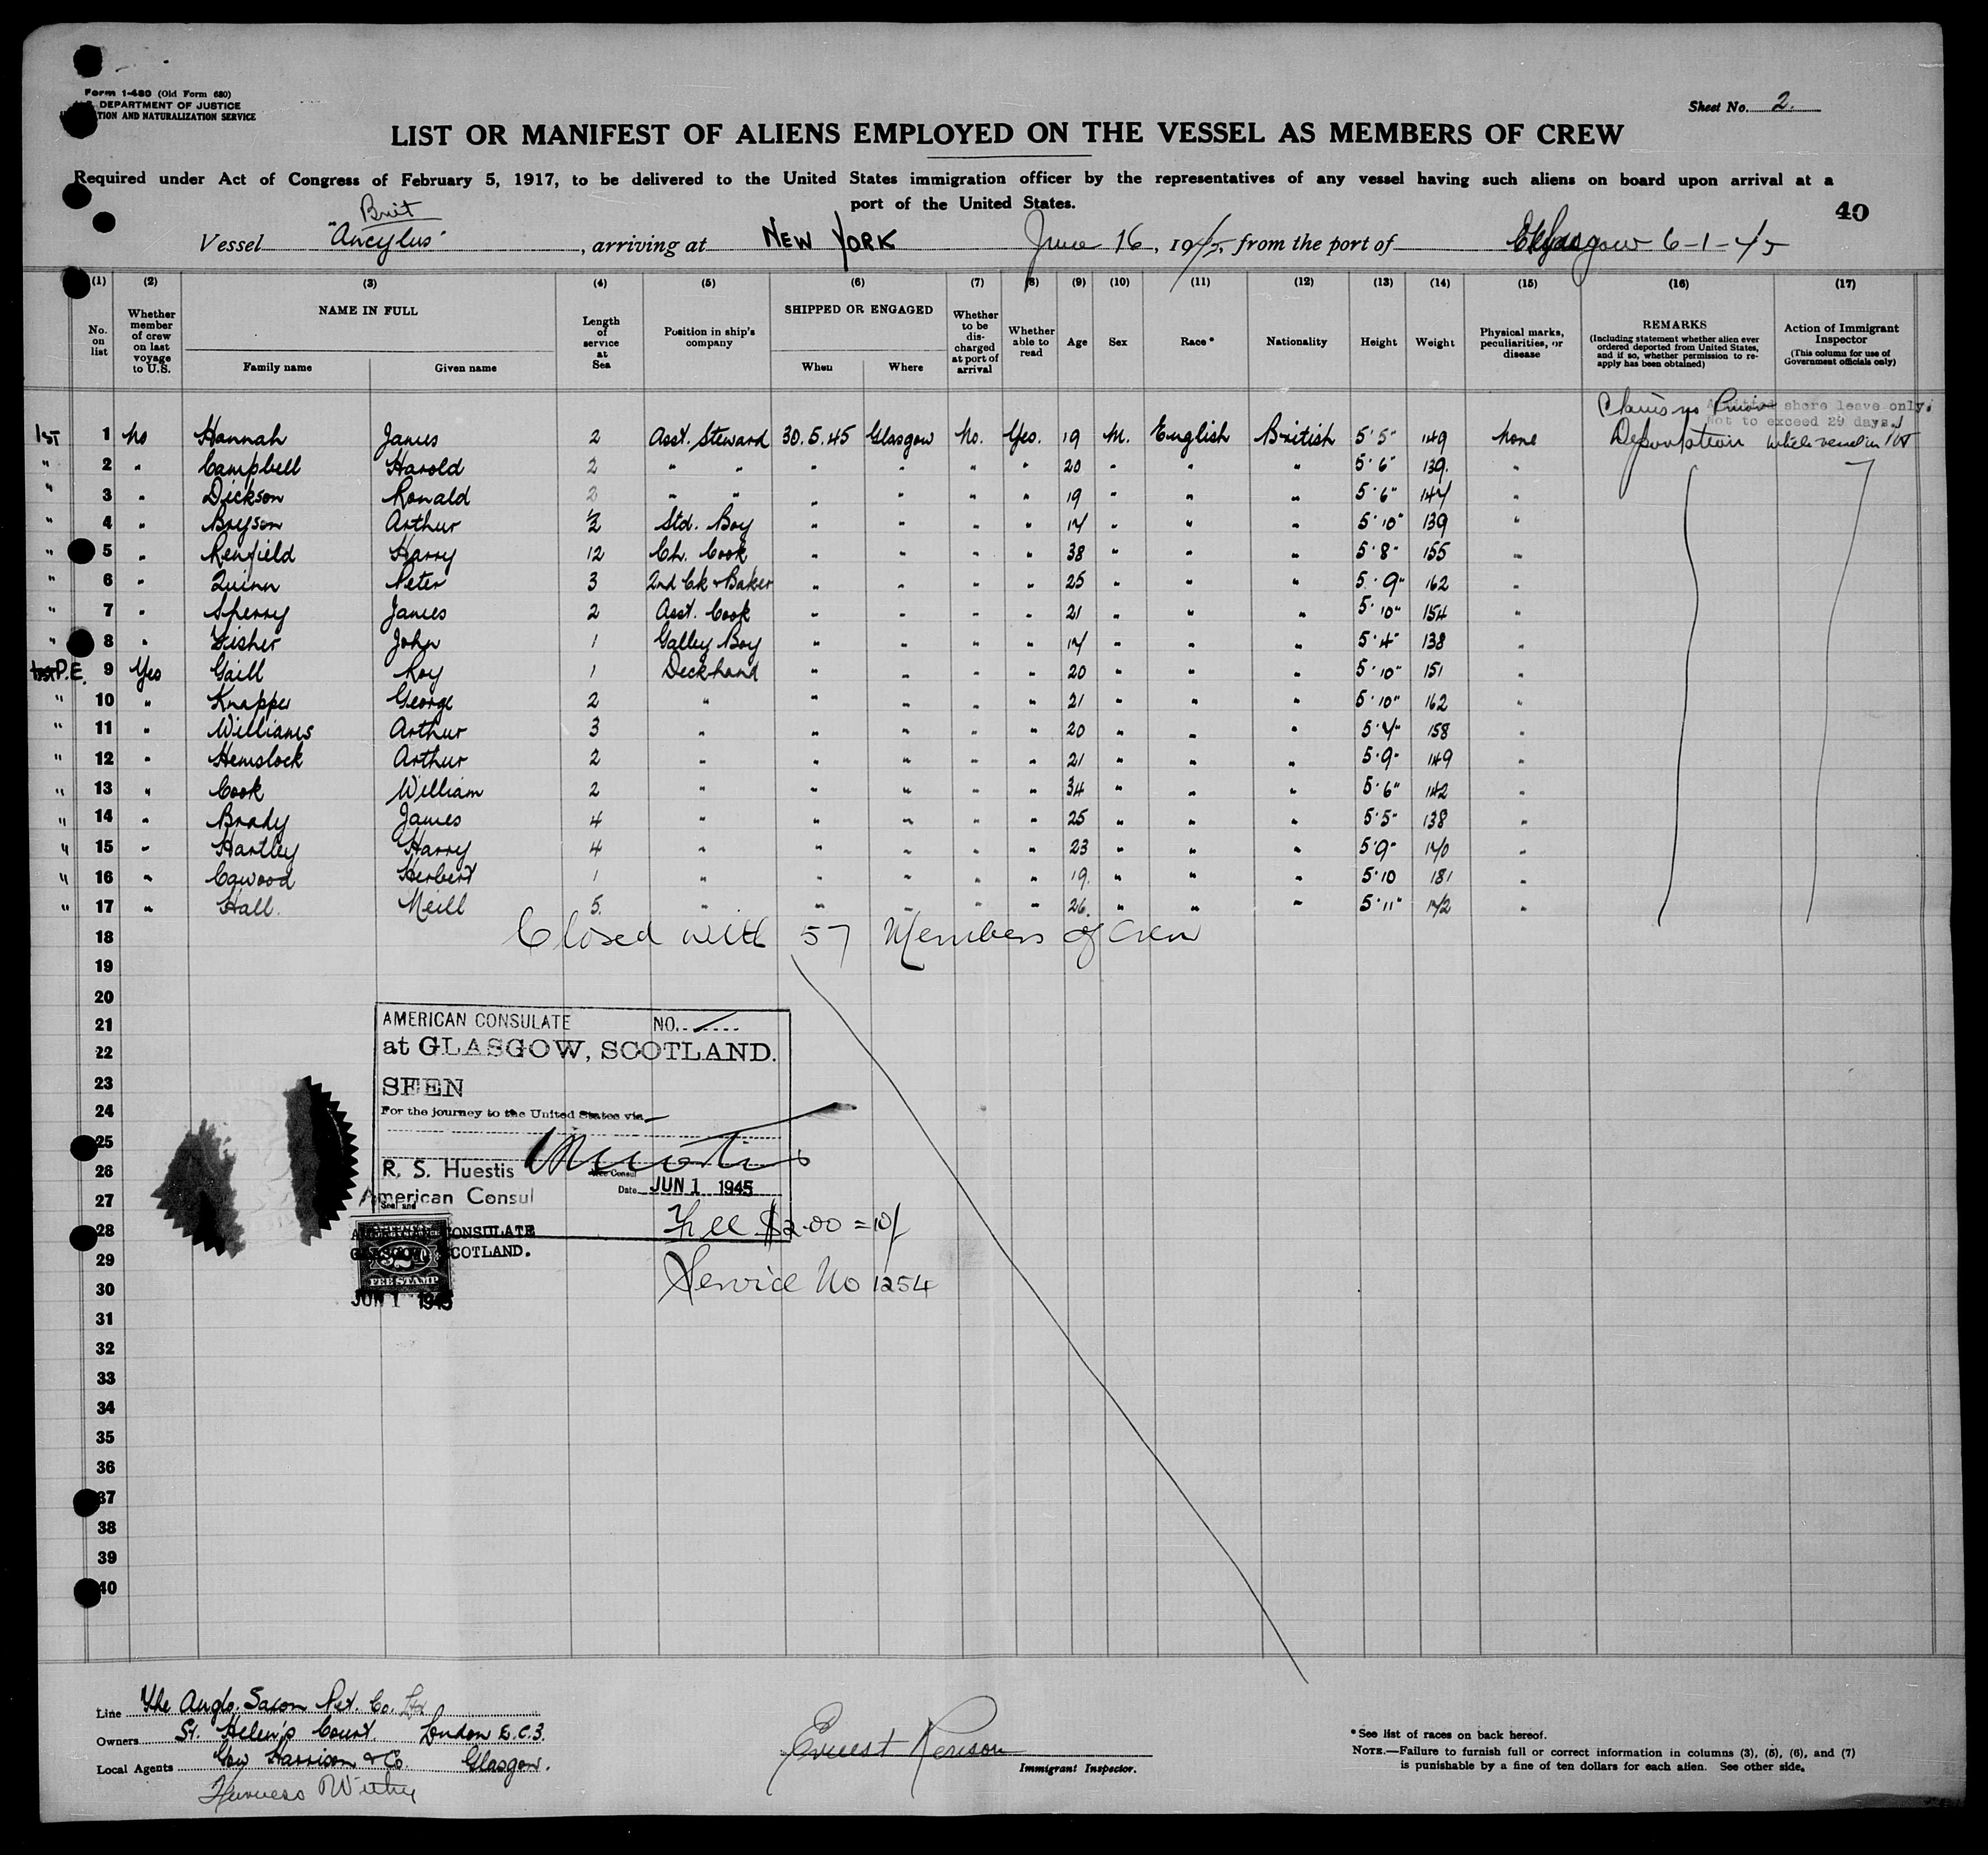 Form 1-480 (Old Form 680)
DEPARTMENT OF JUSTICE
TION AND NATURALIZATION SERVICE
Sheet No. 2.
LIST OR MANIFEST OF ALIENS EMPLOYED ON THE VESSEL AS MEMBERS OF CREW
Required under Act of Congress of February 5, 1917, to be delivered to the United States immigration officer by the representatives of any vessel having such aliens on board upon arrival at a
port of the United States.
40
Brit
Vessel "Ancylus", arriving at NEW YORK June 16, 1945, from the port of Glasgow 6-1-45
(1) (2) (3) (4) (5) (6) (7) (8) (9) (10) (11) (12) (13) (14) (15) (16) (17)
No. on list
Whether member of crew on last voyage to U.S.
NAME IN FULL
Family name Given name
Length of service at Sea
Position in ship's company
SHIPPED OR ENGAGED
When Where
Whether to be discharged at port of arrival
Whether able to read
Age Sex Race* Nationality Height Weight
Physical marks, peculiarities, or disease
REMARKS
(Including statement whether alien ever ordered deported from United States, and if so, whether permission to re-apply has been obtained)
Action of Immigrant Inspector
(This column for use of Government officials only)
Claims no Prior Admitted shore leave only.
Not to exceed 29 days.
1st 1 No Hannah James 2 Asst. Steward 30.5.45 Glasgow No. Yes. 19 M. English British 5'5" 149 None Deportation while vessel in
" 2 " Campbell Harold 2 " " " " " " 20 " " " 5'6" 139. "
" 3 " Dickson Ronald 2 " " " " " " 19 " " " 5'6" 147 "
" 4 " Bryson Arthur ½ Std. Boy " " " " 17 " " " 5'10" 139 "
" 5 " Renfield Harry 12 Ch. Cook " " " " 38 " " " 5'8" 155 "
" 6 " Quinn Peter 3 2nd Ck & Baker " " " " 25 " " " 5'9" 162 "
" 7 " Sherry James 2 Asst. Cook " " " " 21 " " " 5'10" 154 "
" 8 " Fisher John 1 Galley Boy " " " " 17 " " " 5'4" 138 "
P.E. 9 Yes Gaill Roy 1 Deckhand " " " " 20 " " " 5'10" 151 "
" 10 " Knapper George 2 " " " " " 21 " " " 5'10" 162 "
" 11 " Williams Arthur 3 " " " " " 20 " " " 5'7" 158 "
" 12 " Hemslock Arthur 2 " " " " " 21 " " " 5'9" 149 "
" 13 " Cook William 2 " " " " " 34 " " " 5'6" 142 "
" 14 " Brady James 4 " " " " " 25 " " " 5'5" 138 "
" 15 " Hartley Harry 4 " " " " " 23 " " " 5'9" 170 "
" 16 " Cawood Herbert 1 " " " " " 19. " " " 5'10 181 "
" 17 " Hall. Neill 5. " " " " " 26. " " " 5'11" 172 "
18 Closed with 57 Members of Crew
19
20
21
22
23
24
25
26
27
28
29
30
31
32
33
34
35
36
37
38
39
40
AMERICAN CONSULATE NO.
at GLASGOW, SCOTLAND.
SEEN
For the journey to the United States via
R. S. Huestis
Vice Consul
American Consul
Date JUN 1 1945
Seal and
AMERICAN CONSULATE
GLASGOW, SCOTLAND.
FEE STAMP
JUN 1 1945
Fee $2.00 = 10/
Service No 1254
Line The Anglo. Saxon Pet. Co. Ltd
Owners St. Helen's Court. London E.C.3.
Local Agents Gow Harrison & Co. Glasgow.
Furness Withy
Ernest Renison
Immigrant Inspector.
*See list of races on back hereof.
NOTE.—Failure to furnish full or correct information in columns (3), (5), (6), and (7)
is punishable by a fine of ten dollars for each alien. See other side.